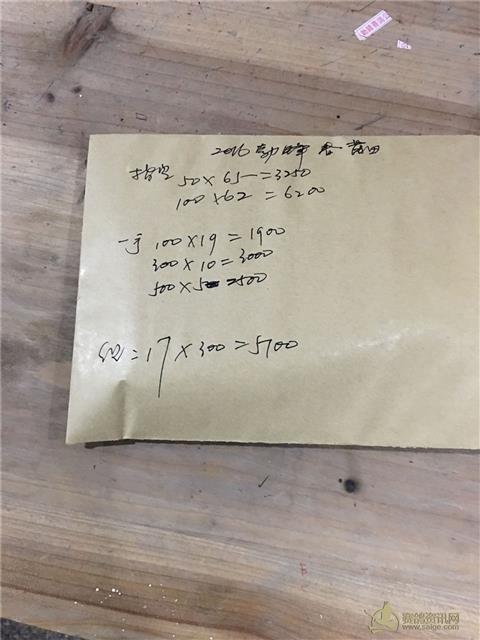 2016
指定 50×65=3250
100×62=6200
一手 100×19=1900
300×10=3000
500×5=2500
=17×300=5100
赛鸽资讯网
www.saige.com